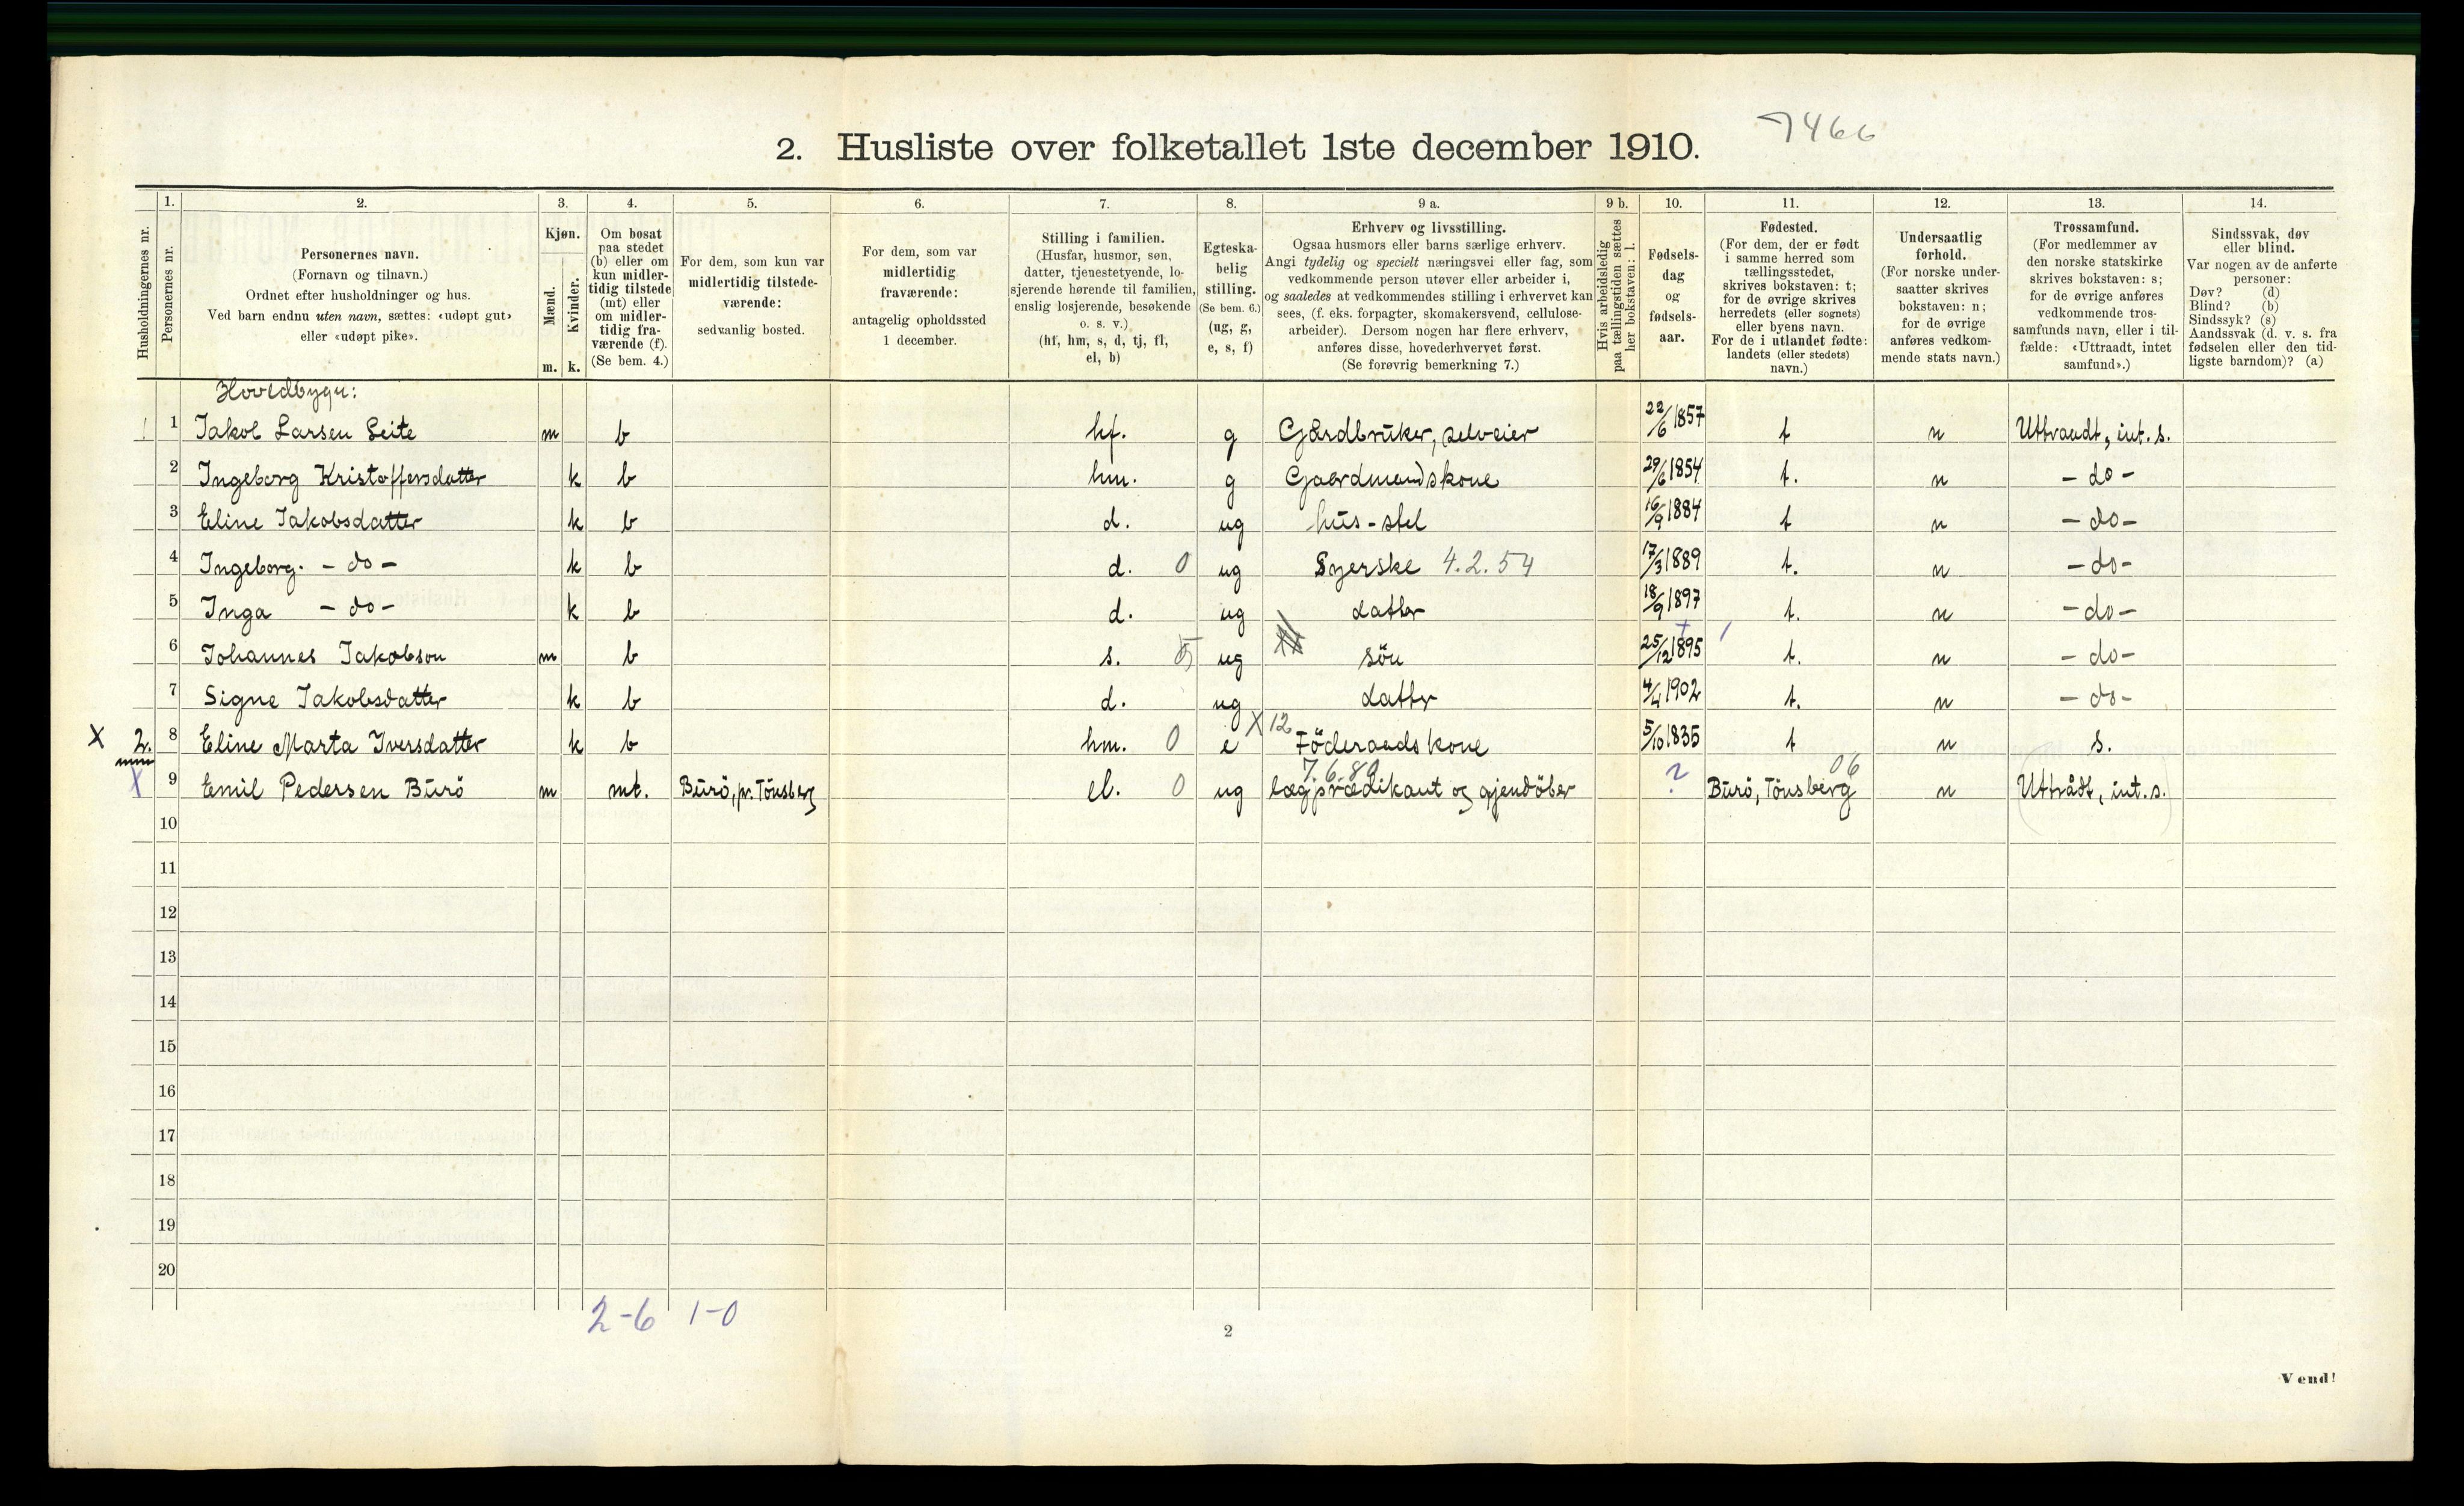 2. Husliste over folketallet 1ste december 1910. 7466
Husholdningernes nr.
1. Personernes nr.
2. Personernes navn.
(Fornavn og tilnavn.)
Ordnet efter husholdninger og hus.
Ved barn endnu uten navn, sættes: «udøpt gut»
eller «udøpt pike».
3. Kjøn.
Mænd. Kvinder.
m. k.
4. Om bosat
paa stedet
(b) eller om
kun midler-
tidig tilstede
(mt) eller
om midler-
tidig fra-
værende (f).
(Se bem. 4.)
5. For dem, som kun var
midlertidig tilstede-
værende:
sedvanlig bosted.
6. For dem, som var
midlertidig
fraværende:
antagelig opholdssted
1 december.
7. Stilling i familien.
(Husfar, husmor, søn,
datter, tjenestetyende, lo-
sjerende hørende til familien,
enslig losjerende, besøkende
o. s. v.)
(hf, hm, s, d, tj, fl,
el, b)
8. Egteska-
belig
stilling.
(Se bem. 6.)
(ug, g,
e, s, f)
9 a. Erhverv og livsstilling.
Ogsaa husmors eller barns særlige erhverv.
Angi tydelig og specielt næringsvei eller fag, som
vedkommende person utøver eller arbeider i,
og saaledes at vedkommendes stilling i erhvervet kan
sees, (f. eks. forpagter, skomakersvend, cellulose-
arbeider). Dersom nogen har flere erhverv,
anføres disse, hovederhvervet først.
(Se forøvrig bemerkning 7.)
9 b. Hvis arbeidsledig
paa tællingstiden sættes
her bokstaven: l.
10. Fødsels-
dag
og
fødsels-
aar.
11. Fødested.
(For dem, der er født
i samme herred som
tællingsstedet,
skrives bokstaven: t;
for de øvrige skrives
herredets (eller sognets)
eller byens navn.
For de i utlandet fødte:
landets (eller stedets)
navn.)
12. Undersaatlig
forhold.
(For norske under-
saatter skrives
bokstaven: n;
for de øvrige
anføres vedkom-
mende stats navn.)
13. Trossamfund.
(For medlemmer av
den norske statskirke
skrives bokstaven: s;
for de øvrige anføres
vedkommende tros-
samfunds navn, eller i til-
fælde: «Uttraadt, intet
samfund».)
14. Sindssvak, døv
eller blind.
Var nogen av de anførte
personer:
Døv? (d)
Blind? (b)
Sindssyk? (s)
Aandssvak (d. v. s. fra
fødselen eller den tid-
ligste barndom)? (a)
Hovedbygn:
1 Jakob Larsen Leite m b hf. g Gårdbruker, selveier 22/6 1857 t n Uttraadt, int. s.
2 Ingeborg Kristoffersdatter k b hm. g Gaardmandskone 29/6 1854 t. n - do -
3 Eline Jakobsdatter k b d. ug hus-stel 16/9 1884 t n - do -
4 Ingeborg. - do - k b d. 0 ug Syerske 4.2.54 17/3 1889 t. n - do -
5 Inga - do - k b d. ug datter 18/9 1897 t. n - do -
6 Johannes Jakobson m b s. ug sön 25/12 1895 t. n - do -
7 Signe Jakobsdatter k b d. ug datter 4/4 1902 t. n - do -
X 2. 8 Eline Marta Iversdatter k b hm. 0 e X 12 Föderaadskone 5/10 1835 t n s.
X 9 Emil Pedersen Burö m mt. Burö, pr. Tönsberg el. 0 ug 7.6.80 lægprædikant og gjendöber ? Burö, Tönsberg 06 n Uttrådt, int. s.
10
11
12
13
14
15
16
17
18
19
20
2-6 1-0
2
Vend!